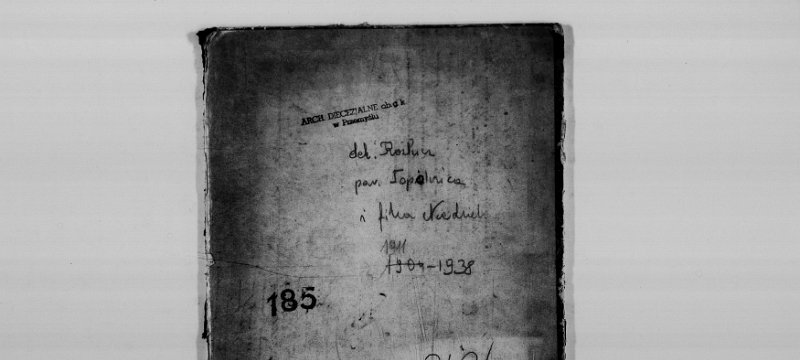 ARCH. DIECEZJALNE ob. gr. k.
w Przemyślu
dek. Rozłucz
par. Topolnica
i filia Niedzieln
1911
1904-1938
185